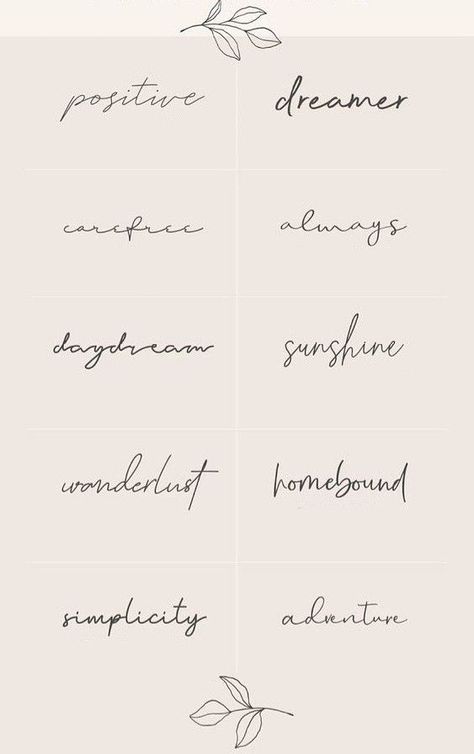 positive
dreamer
carefree
always
daydream
sunshine
wanderlust
homebound
simplicity
adventure